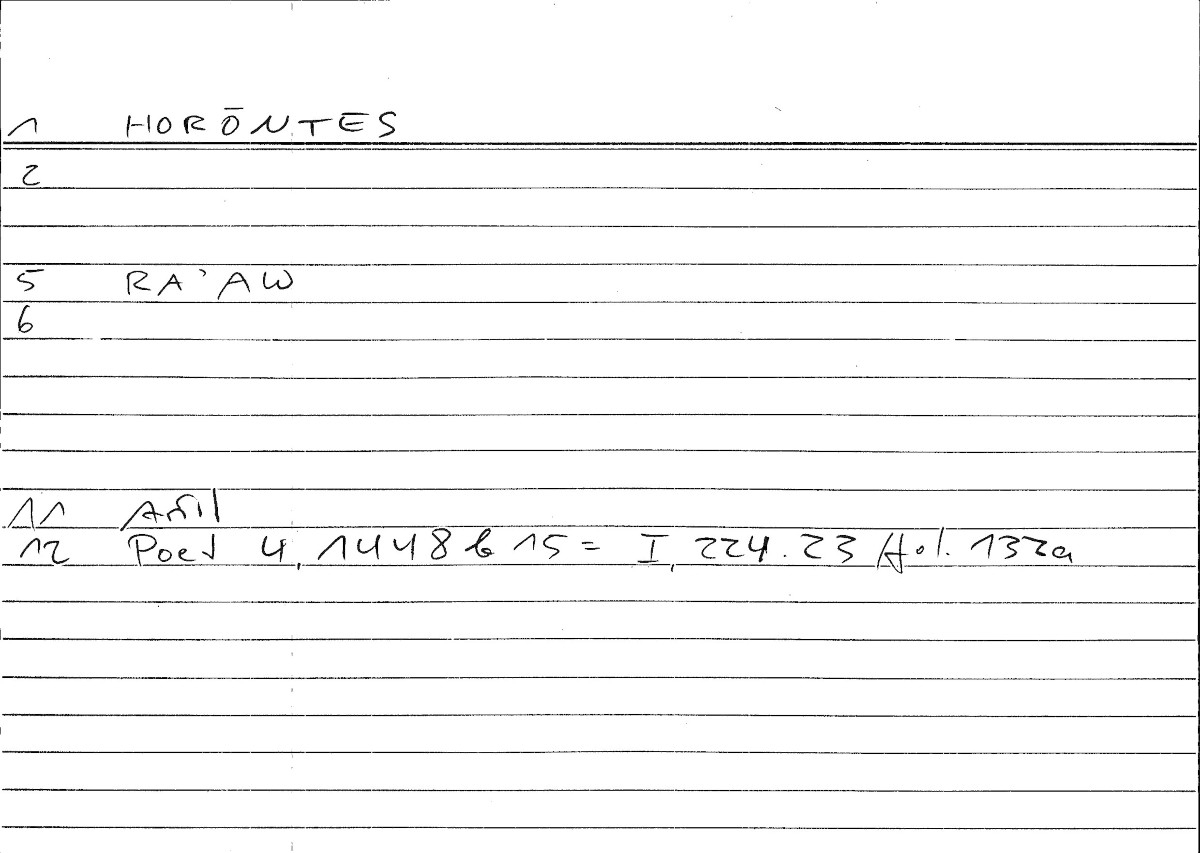 1 HORŌNTES
2
5 RA'AW
6
11 Arist
12 Poet 4, 1448 b 15 = I, 224.23 /fol. 132a